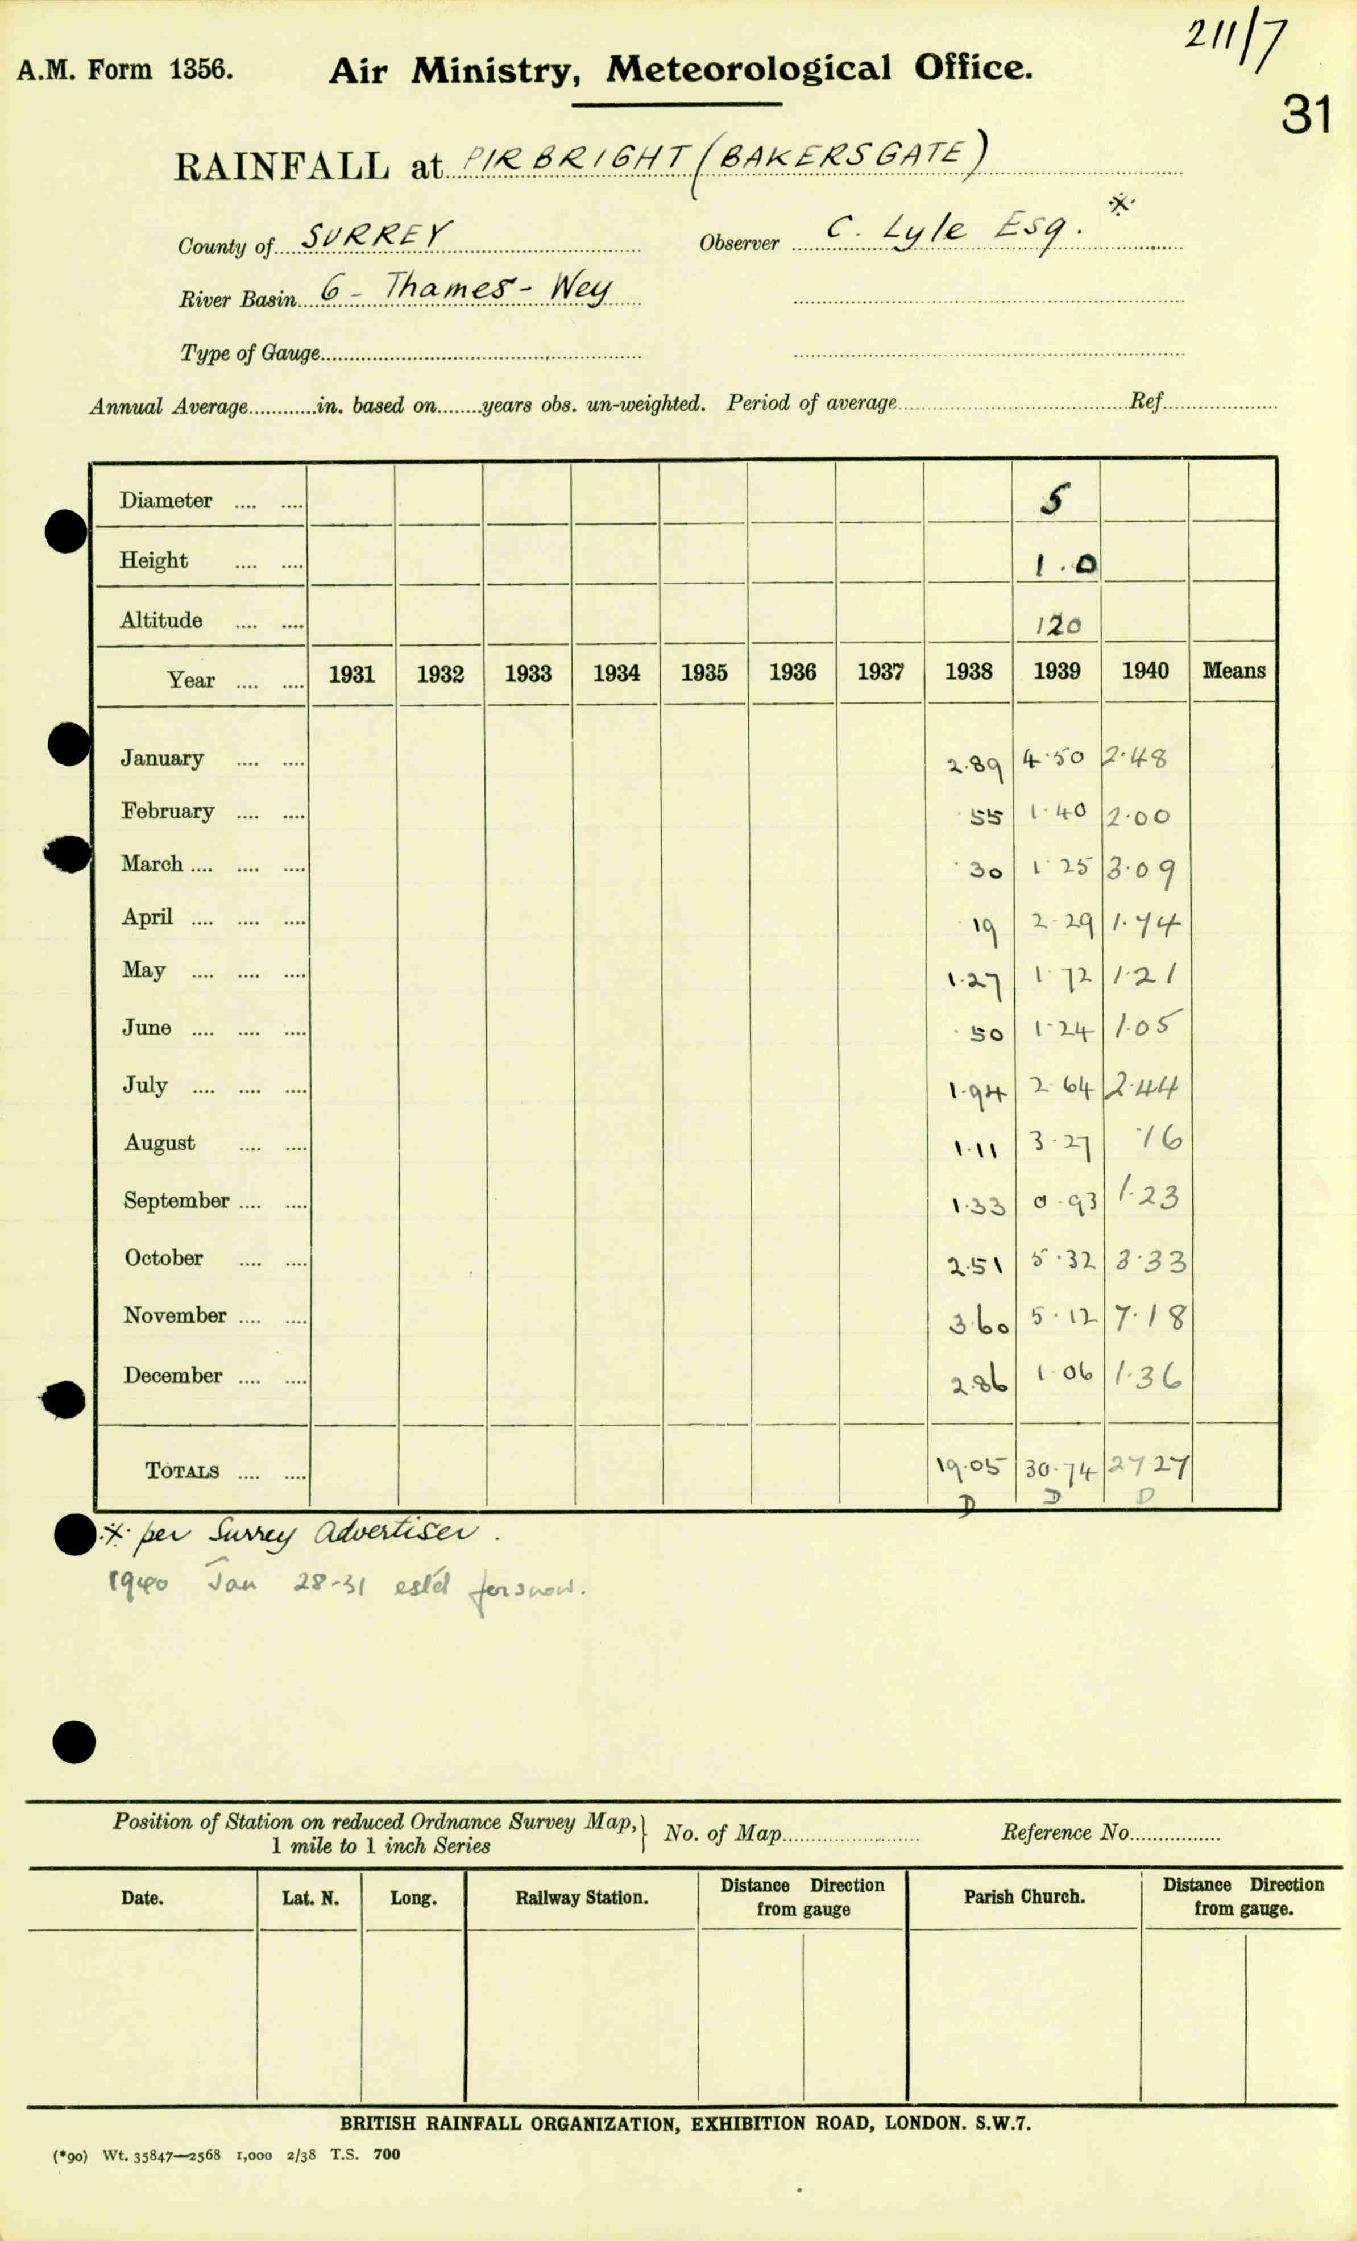 211/7
A.M. Form 1356. Air Ministry, Meteorological Office.
31
RAINFALL at PIRBRIGHT (BAKERSGATE)
County of SURREY Observer C. Lyle Esq. *
River Basin 6 - Thames - Wey
Type of Gauge
Annual Average in. based on years obs. un-weighted. Period of average Ref.
Diameter 5
Height 1.0
Altitude 120
Year 1931 1932 1933 1934 1935 1936 1937 1938 1939 1940 Means
January 2.89 4.50 2.48
February .55 1.40 2.00
March .30 1.25 3.09
April .19 2.29 1.74
May 1.27 1.72 1.21
June .50 1.24 1.05
July 1.94 2.64 2.44
August 1.11 3.27 .16
September 1.33 0.93 1.23
October 2.51 5.32 3.33
November 3.60 5.12 7.18
December 2.86 1.06 1.36
TOTALS 19.05 30.74 27 27
D D D
* per Surrey Advertiser.
1940 Jan 28-31 est'd for snow.
Position of Station on reduced Ordnance Survey Map, } No. of Map Reference No.
1 mile to 1 inch Series
Date. Lat. N. Long. Railway Station. Distance Direction from gauge Parish Church. Distance Direction from gauge.
BRITISH RAINFALL ORGANIZATION, EXHIBITION ROAD, LONDON. S.W.7.
(*90) Wt. 35847—2568 1,000 2/38 T.S. 700